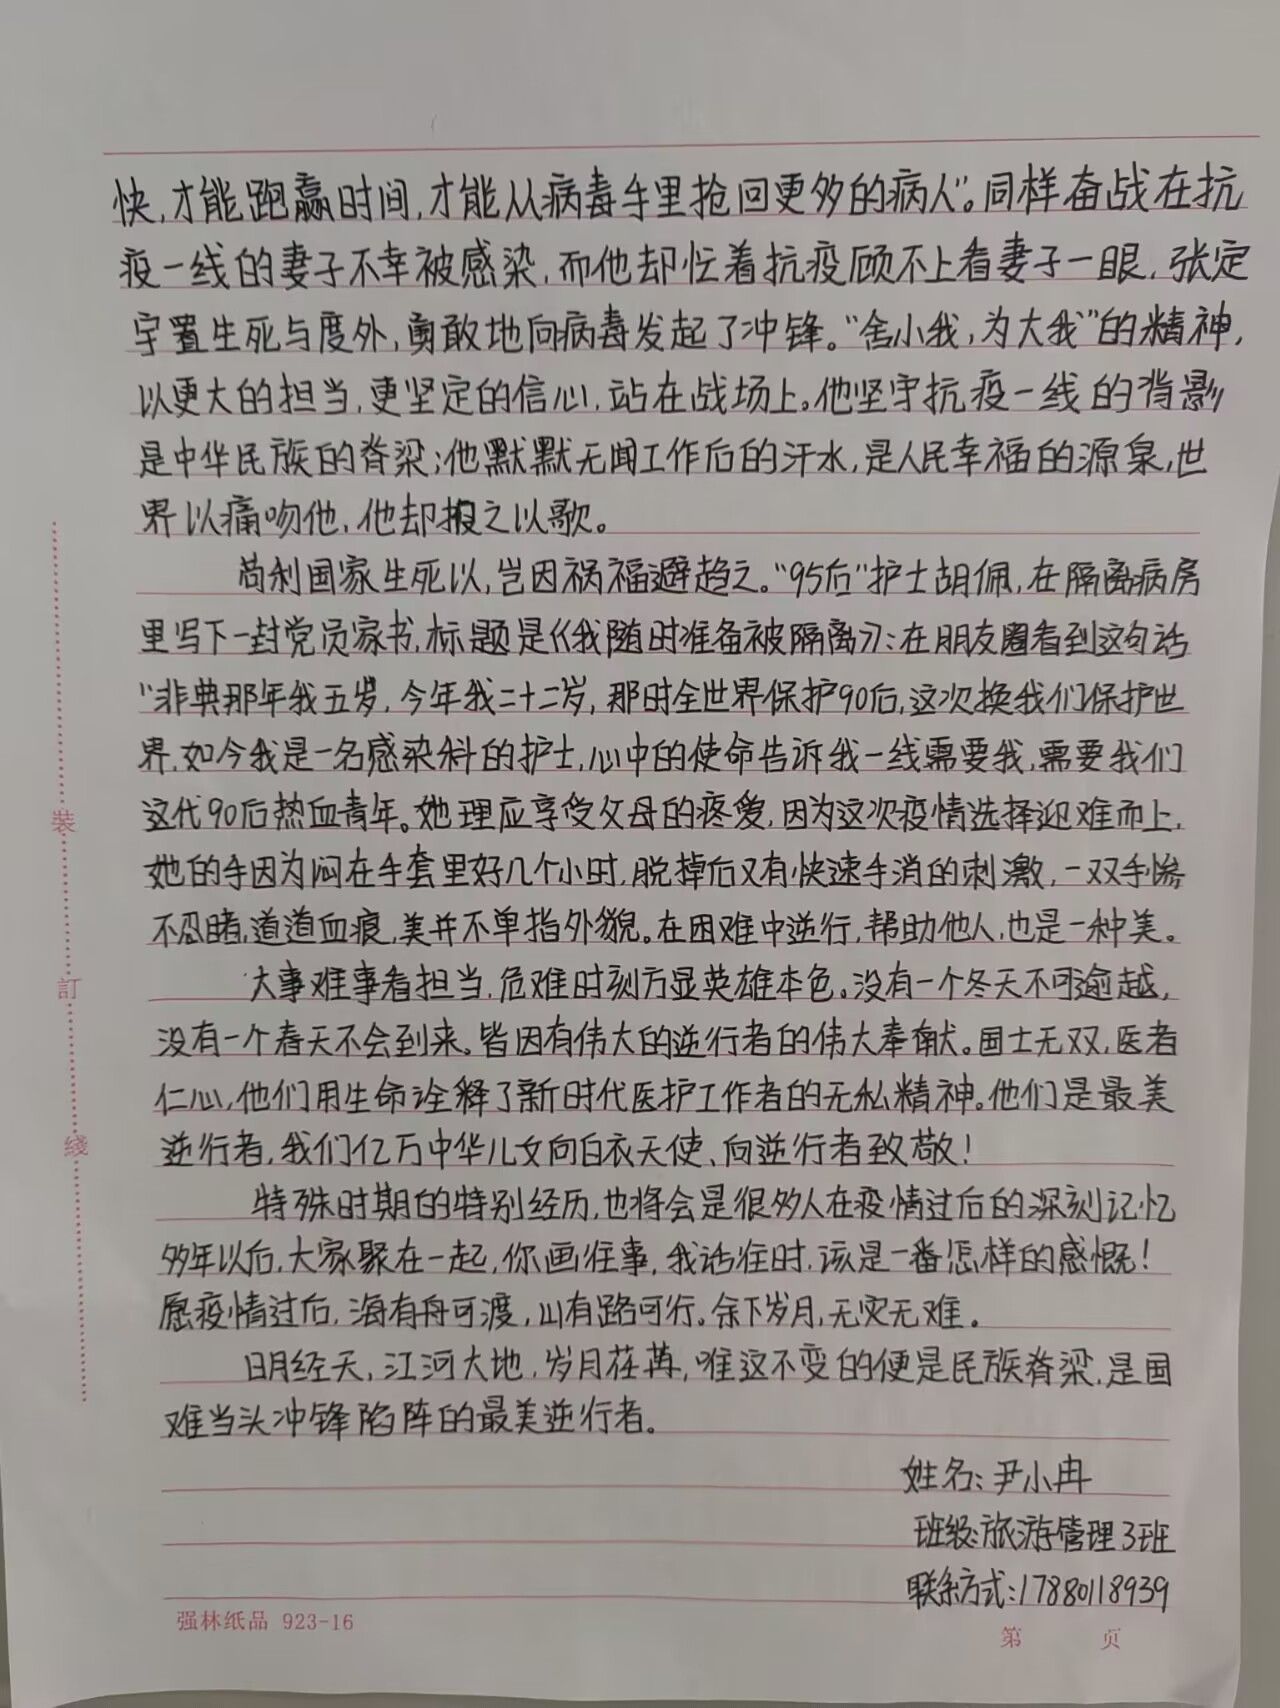 快,才能跑赢时间,才能从病毒手里抢回更多的病人”。同样奋战在抗
疫一线的妻子不幸被感染,而他却忙着抗疫顾不上看妻子一眼,张定
宇置生死与度外,勇敢地向病毒发起了冲锋。“舍小我,为大我”的精神,
以更大的担当,更坚定的信心,站在战场上。他坚守抗疫一线的背影
是中华民族的脊梁;他默默无闻工作后的汗水,是人民幸福的源泉,世
界以痛吻他,他却报之以歌。
苟利国家生死以,岂因祸福避趋之。“95后”护士胡佩,在隔离病房
里写下一封党员家书,标题是《我随时准备被隔离》:在朋友圈看到这句话
“非典那年我五岁,今年我二十二岁,那时全世界保护90后,这次换我们保护世
界,如今我是一名感染科的护士,心中的使命告诉我一线需要我,需要我们
这代90后热血青年。她理应享受父母的疼爱,因为这次疫情选择迎难而上,
她的手因为闷在手套里好几个小时,脱掉后又有快速手消的刺激,一双手惨
不忍睹,道道血痕,美并不单指外貌。在困难中逆行,帮助他人,也是一种美。
大事难事看担当,危难时刻方显英雄本色。没有一个冬天不可逾越,
没有一个春天不会到来。皆因有伟大的逆行者的伟大奉献。国士无双,医者
仁心,他们用生命诠释了新时代医护工作者的无私精神。他们是最美
逆行者,我们亿万中华儿女向白衣天使、向逆行者致敬!
特殊时期的特别经历,也将会是很多人在疫情过后的深刻记忆
多年以后,大家聚在一起,你画往事,我话往时,该是一番怎样的感慨!
愿疫情过后,海有舟可渡,山有路可行。余下岁月,无灾无难。
日月经天,江河大地,岁月荏苒,唯这不变的便是民族脊梁,是国
难当头冲锋陷阵的最美逆行者。
姓名:尹小冉
班级:旅游管理3班
联系方式:17880118939
装
訂
綫
强林纸品 923-16
第 页